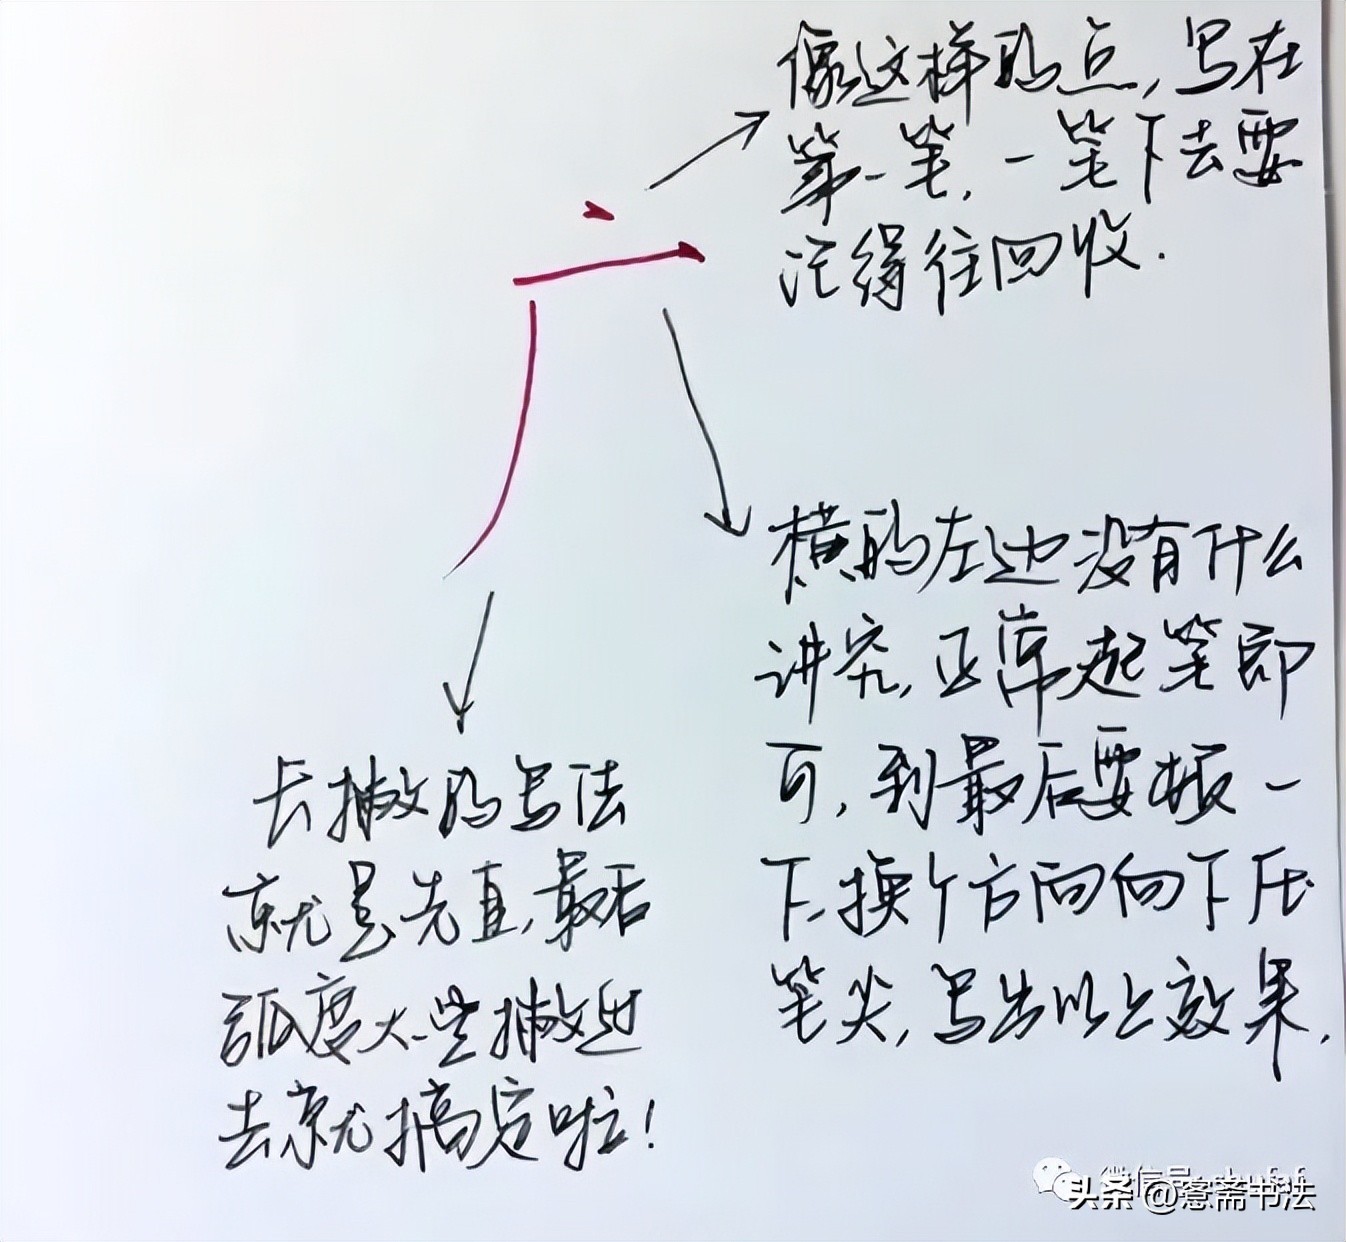 像这样的点，写在
第一笔，一笔下去要
记得往回收.
横的左边没有什么
讲究，正常起笔即
可，到最后要振一
下，换个方向向下压
笔尖，写出以上效果.
长撇的写法
就是先直，最后
弧度大一些撇出
去就搞定啦！
微信号: shufaf
头条 @鸢斋书法